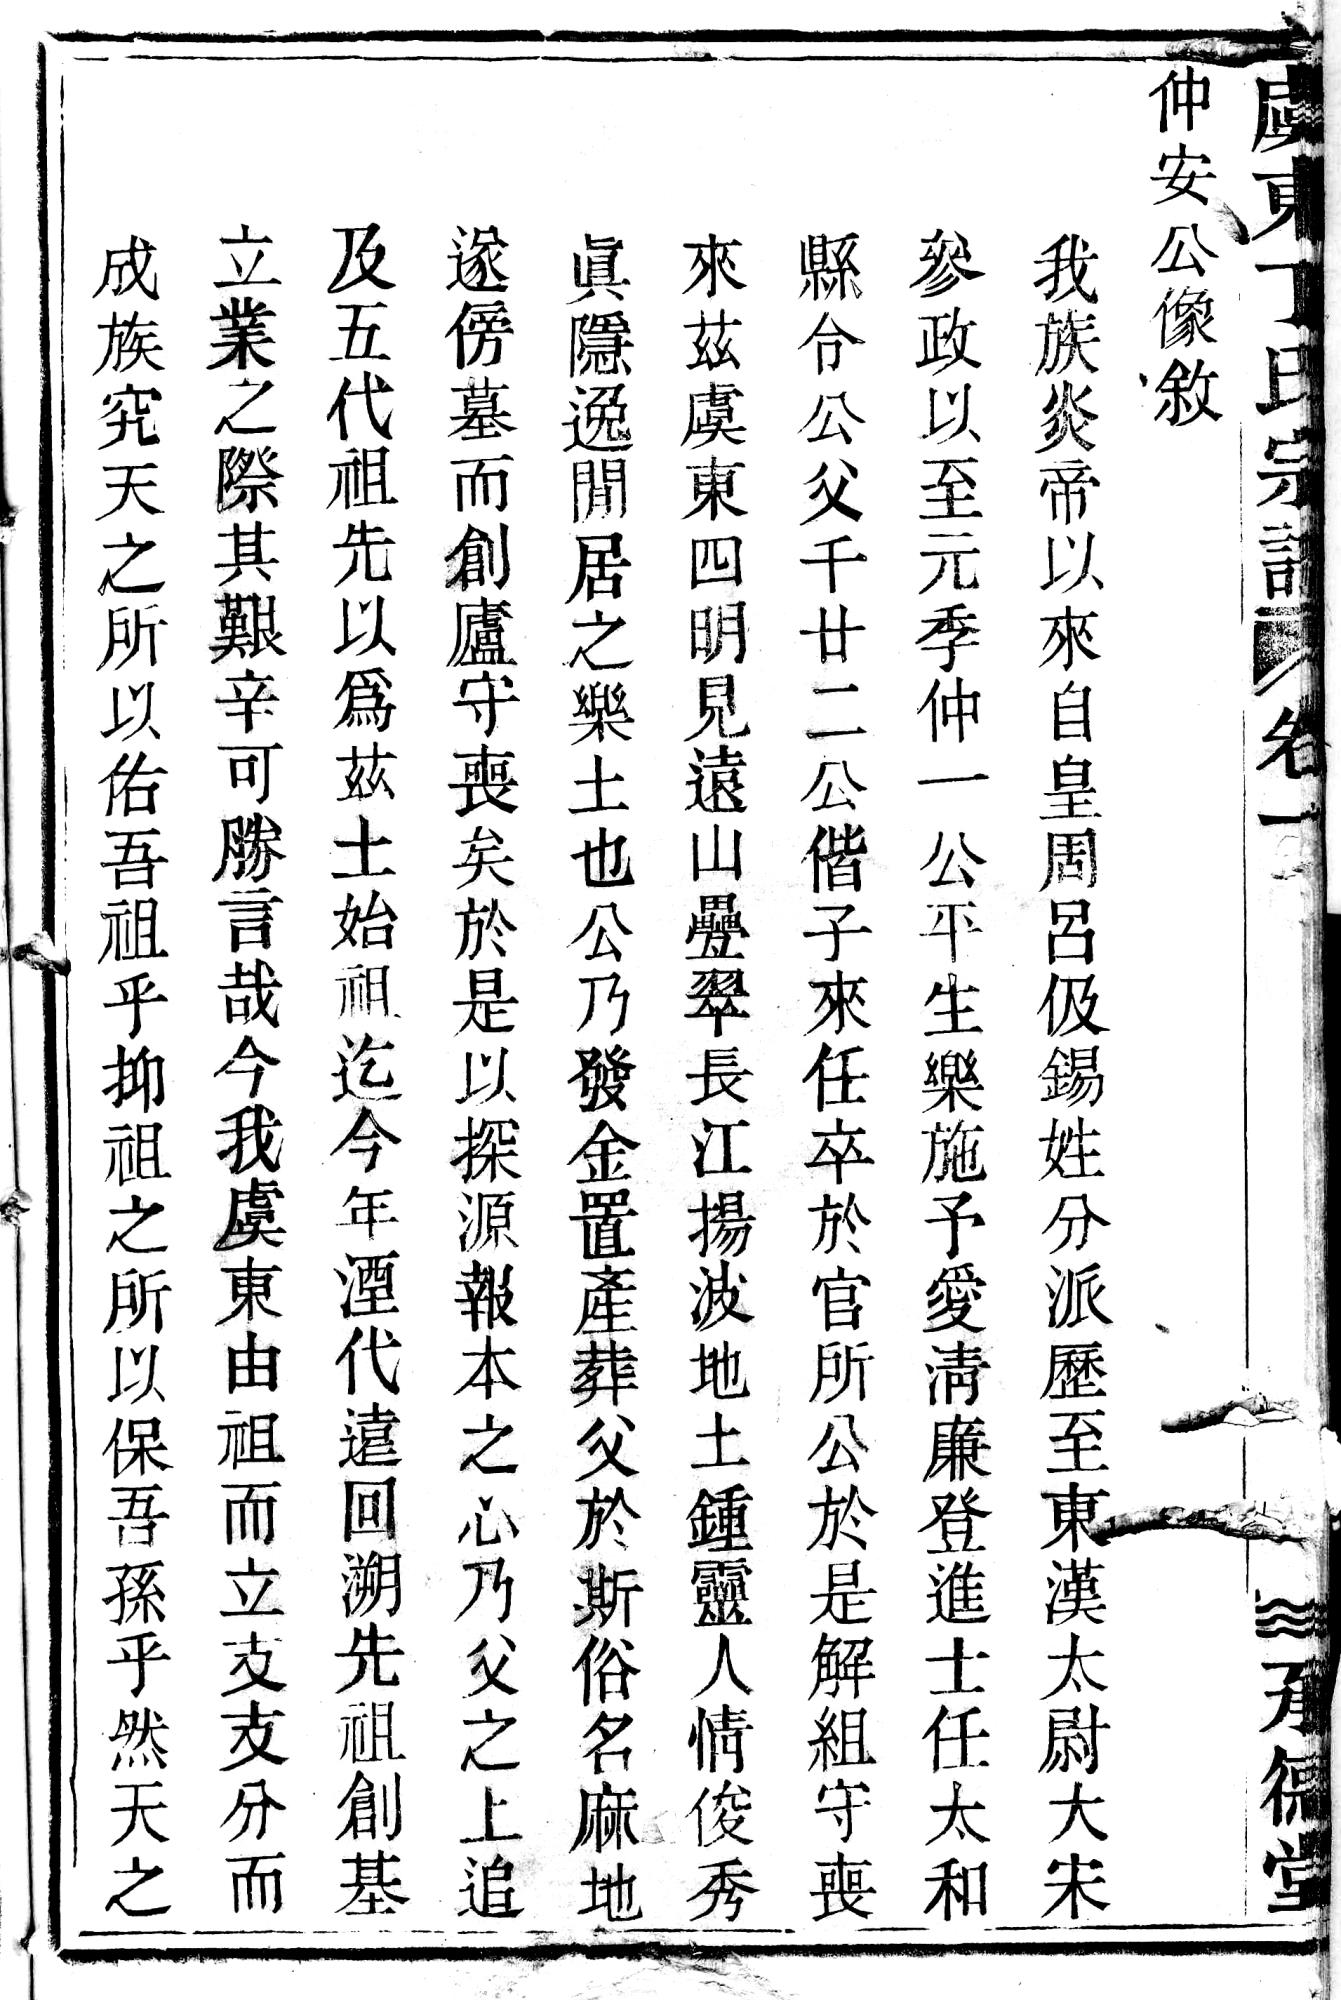 虞東丁氏宗譜 卷一 承德堂
仲安公像敘
我族炎帝以來自皇周呂伋錫姓分派歷至東漢太尉大宋
參政以至元季仲一公平生樂施予愛淸廉登進士任太和
縣令公父千廿二公偕子來任卒於官所公於是解組守喪
來茲虞東四明見遠山疊翠長江揚波地土鍾靈人情俊秀
眞隱逸閒居之樂土也公乃發金置產葬父於斯俗名麻地
遂傍墓而創廬守喪矣於是以探源報本之心乃父之上追
及五代祖先以爲茲土始祖迄今年湮代遠回溯先祖創基
立業之際其艱辛可勝言哉今我虞東由祖而立支支分而
成族究天之所以佑吾祖乎抑祖之所以保吾孫乎然天之